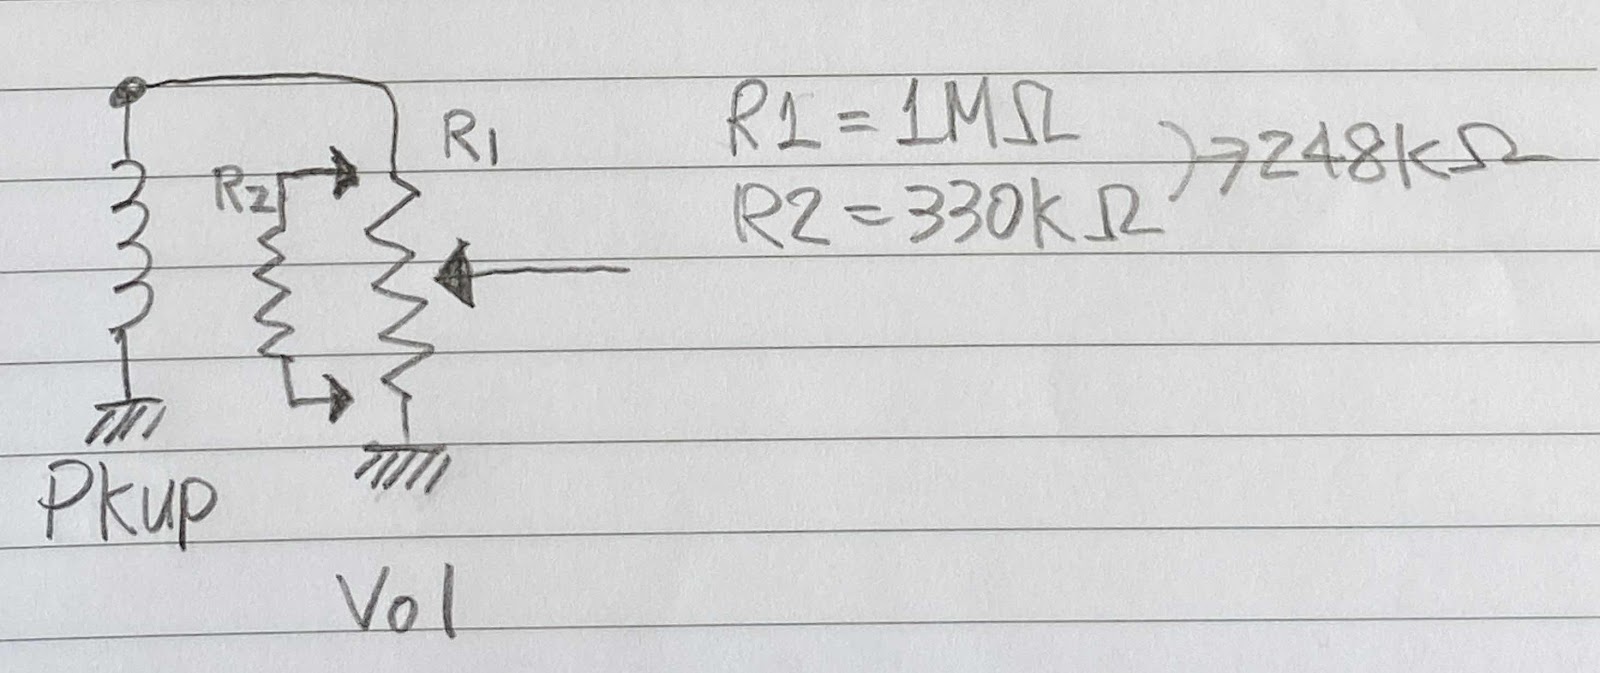 R1
R2
Pkup
Vol
R1 = 1MΩ
R2 = 330kΩ
→ 248kΩ